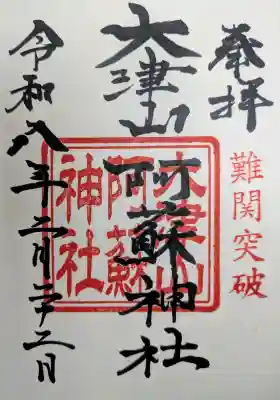 奉拝
難関突破
大津山阿蘇神社
大津山
阿蘇
神社
令和八年二月二十二日